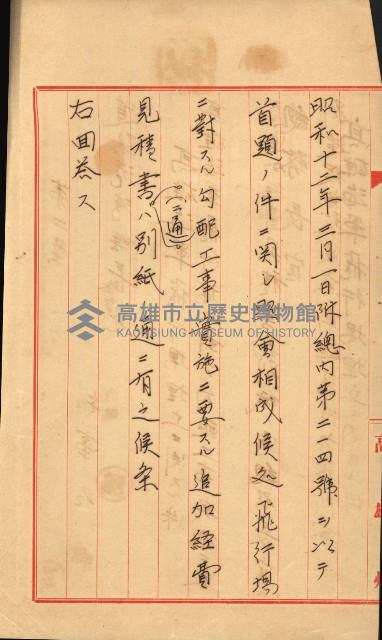 昭和十二年三月一日附總内第二一四號ヲ以テ
首題ノ件ニ関シ照會相成候処飛行場
ニ對スル勾配工事實施ニ要スル追加経費
見積書(二通)ハ別紙ノ通ニ有之候条
右回答ス
高雄州
高雄市立歷史博物館
KAOHSIUNG MUSEUM OF HISTORY